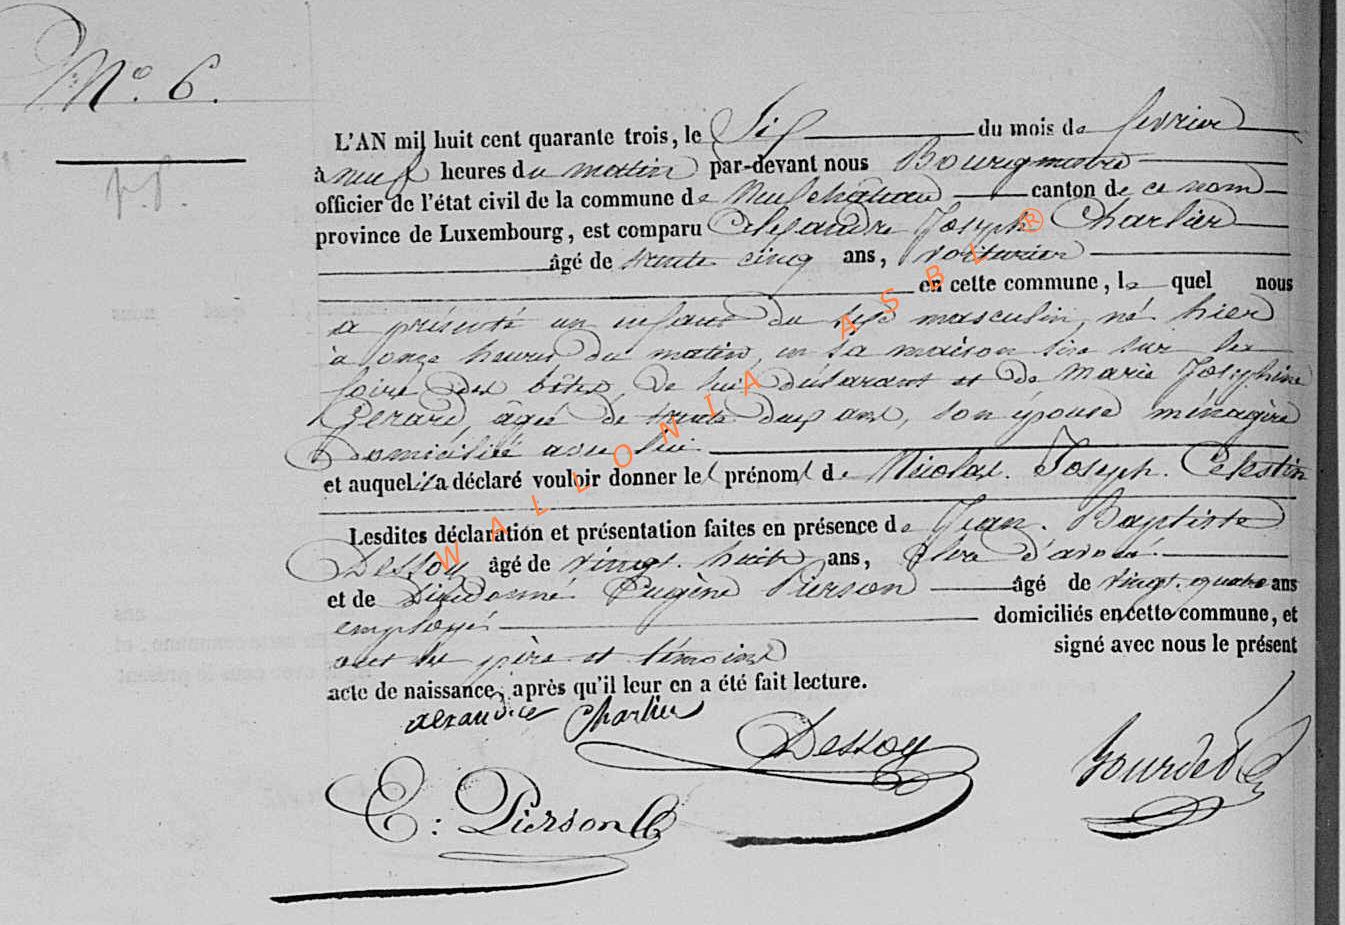 N.o 6.
L'AN mil huit cent quarante trois, le Six du mois de fevrier
à neuf heures du matin par-devant nous Bourgmestre
officier de l'état civil de la commune de Neufchateau canton de ce nom
province de Luxembourg, est comparu Alexandre Joseph Charlier
âgé de trente cinq ans, voiturier
en cette commune, le quel nous
a présenté un enfant du sexe masculin, né hier
à onze heures du matin, en sa maison sise sur la
foire des bêtes, de lui déclarant et de Marie Josephine
Gerard, âgée de trente deux ans, son épouse ménagère
domicilié avec lui
et auquel il a déclaré vouloir donner les prénoms de Nicolas. Joseph. Celestin
Lesdites déclaration et présentation faites en présence de Jean. Baptiste
Dessoy âgé de vingt. huit ans, clerc d'avoué.
et de Dieudonné Eugène Pierson âgé de vingt. quatre ans
employé domiciliés en cette commune, et
ont les père et témoins signé avec nous le présent
acte de naissance, après qu'il leur en a été fait lecture.
alexandre Charlier
Dessoy
E: Pierson
WALLONIA ASBL ®